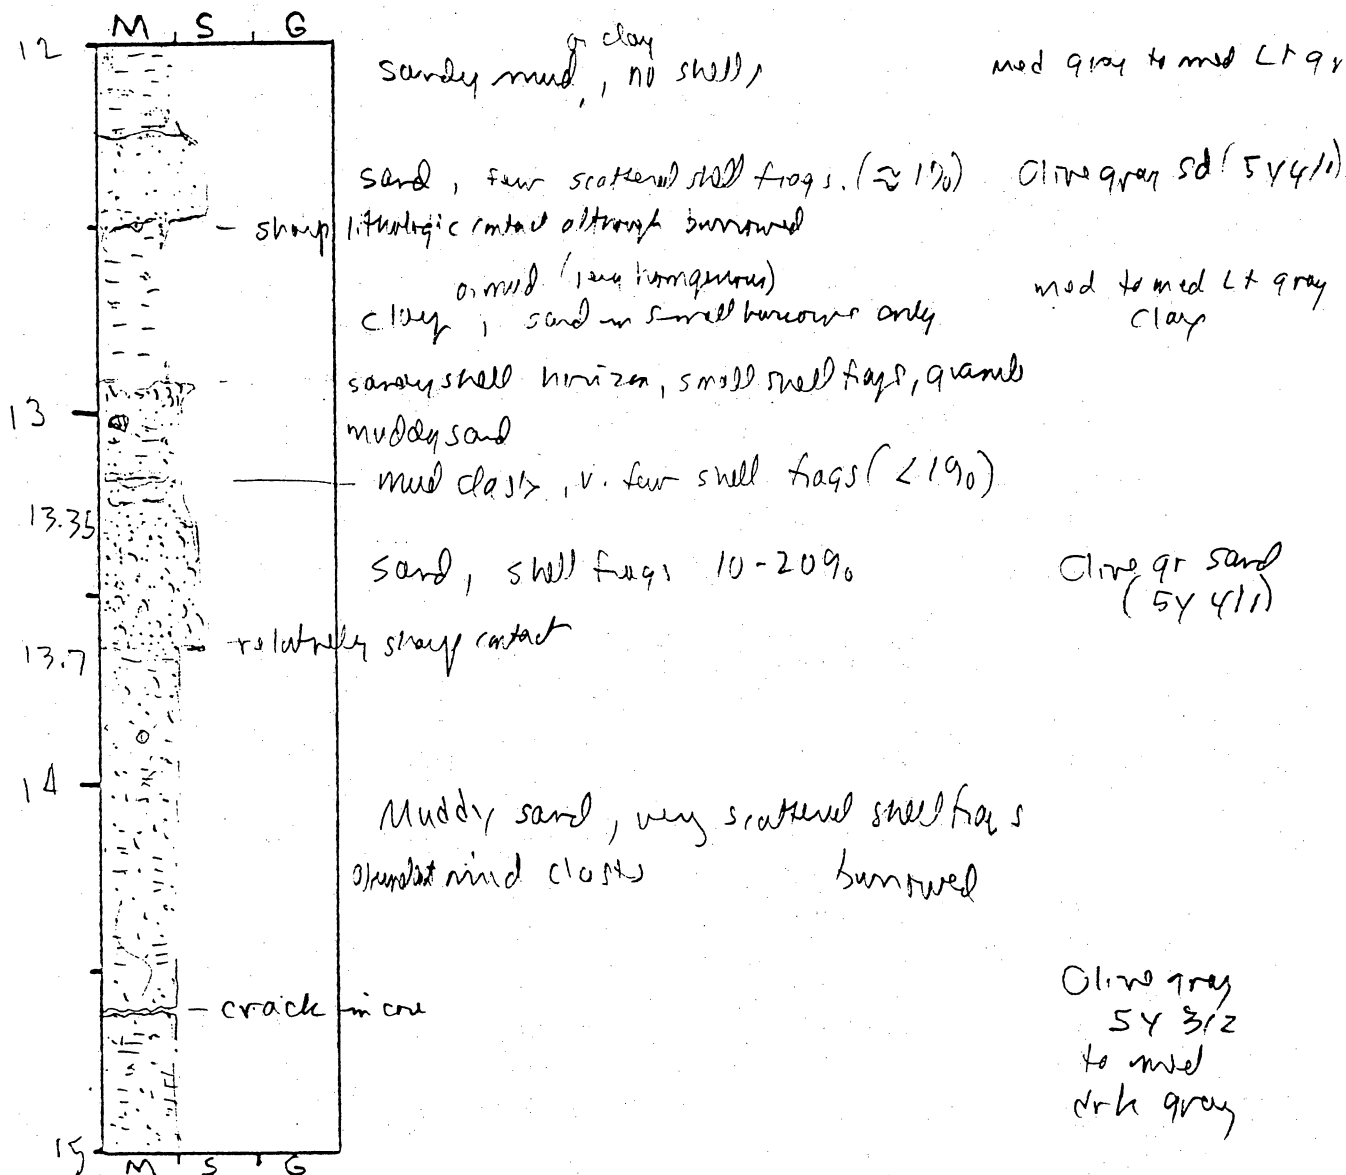 M S G
12
or clay
sandy mud, no shells
med gray to med Lt gr
sand, few scattered shell frags. (≈ 1%)
Olive gray sd (5Y4/1)
- sharp lithologic contact although burrowed
or mud (very homogenous)
clay, sand in small burrows only
med to med Lt gray
clay
sandy shell horizon, small shell frags,
13
muddy sand
mud clasts, v. few shell frags (<1%)
13.35
sand, shell frags 10-20%
Olive gr sand
(5Y 4/1)
- relatively sharp contact
13.7
14
Muddy sand, very scattered shell frags
abundat mud clasts burrowed
- crack in core
Olive gray
5Y 3/2
to med
drk gray
15
M S G